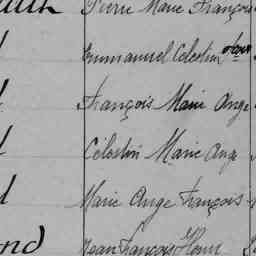 Pierre Marie François
Emmanuel Célestin
François Marie Ange
Célestin Marie Ange
Marie Ange François
Jean François Henri